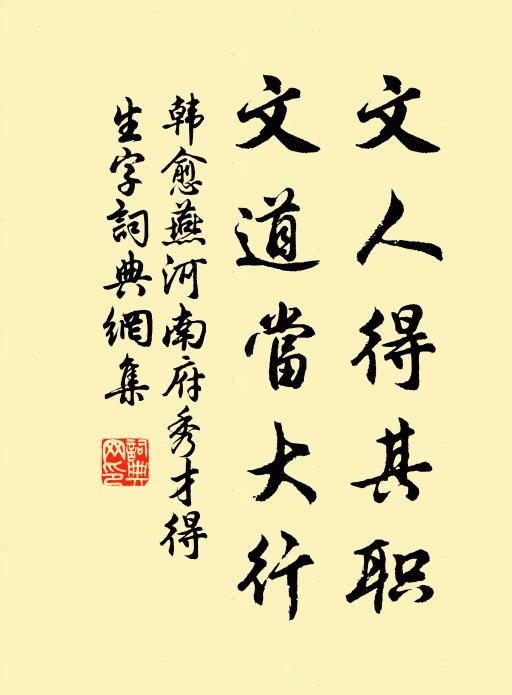 文人得其职
文道當大行
韩愈燕河南府秀才得
生字詞典網集
詞典
网印